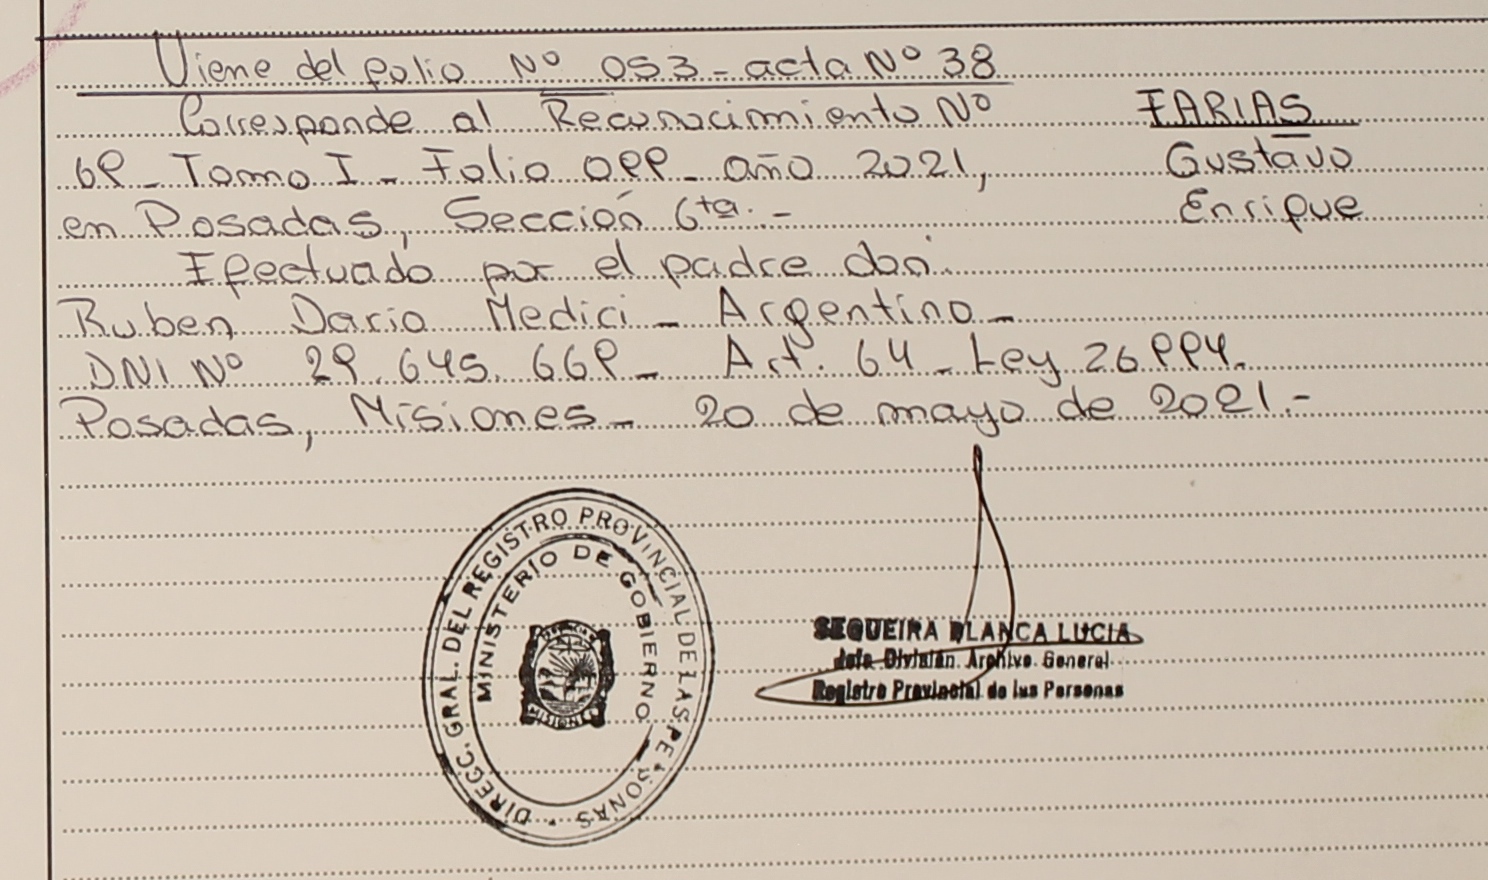 Viene del folio Nº 053 - acta Nº 38
Corresponde al Reconocimiento Nº
69 - Tomo I - Folio 099 - año 2021,
en Posadas, Sección 6ta. -
Efectuado por el padre don:
Ruben Dario Medici - Argentino -
DNI Nº 29.645.669 - Art. 64 - Ley 26.994.
Posadas, Misiones - 20 de mayo de 2021.-
FARIAS
Gustavo
Enrique
DIRECC. GRAL. DEL REGISTRO PROVINCIAL DE LAS PERSONAS
MINISTERIO DE GOBIERNO
MISIONES
SEQUEIRA BLANCA LUCIA
Jefa División Archivo General
Registro Provincial de las Personas